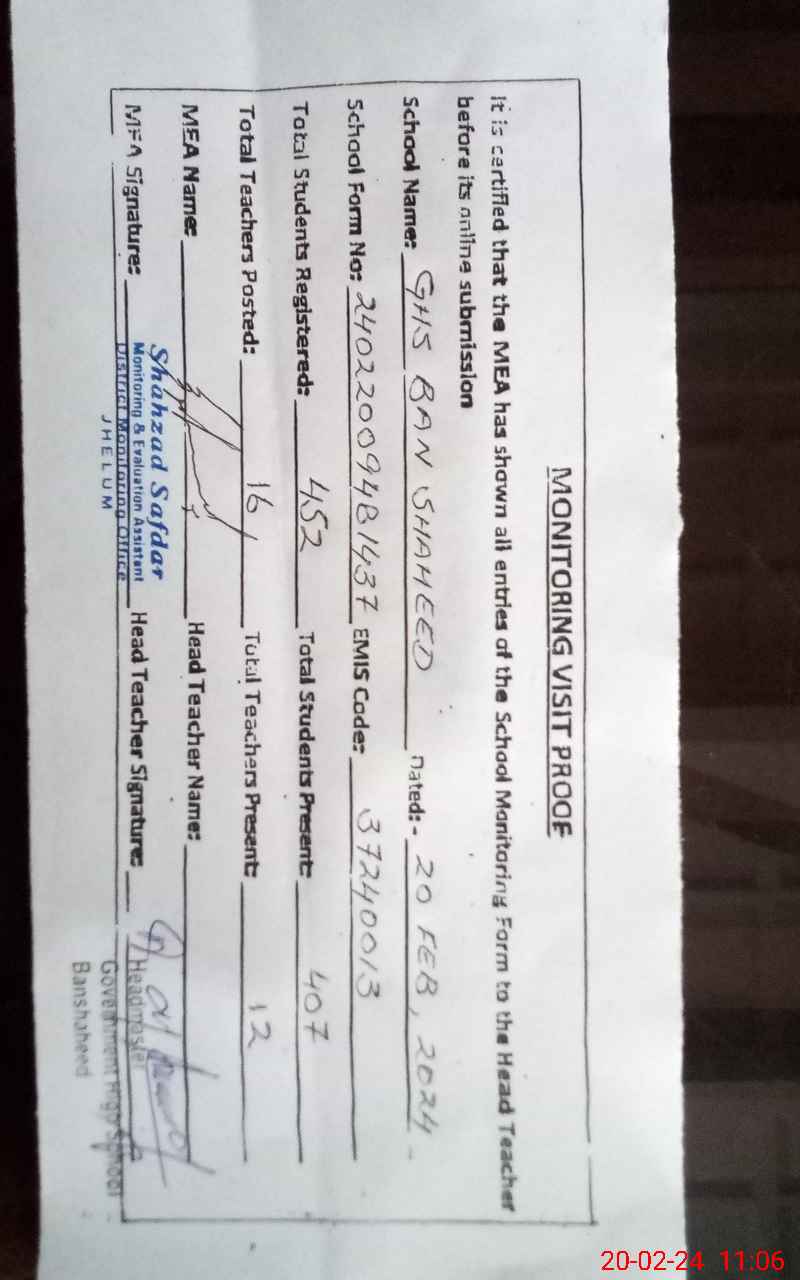 MONITORING VISIT PROOF
It is certified that the MEA has shown all entries of the School Monitoring Form to the Head Teacher
before its online submission
School Name: GHS BAN SHAHEED Dated:- 20 FEB, 2024
School Form No: 24022009481437 EMIS Code: 37240013
Total Students Registered: 452 Total Students Present: 407
Total Teachers Posted: 16 Total Teachers Present: 12
MEA Name: Head Teacher Name:
MEA Signature: Head Teacher Signature:
Shahzad Safdar
Monitoring & Evaluation Assistant
District Monitoring Office
JHELUM
Headmaster
Government High School
Banshaheed
20-02-24 11:06